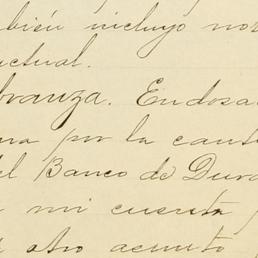 bién incluyo no
ctual.
branza. Endosa
na por la cant
el Banco de Dura
mi cuenta
otro asunto